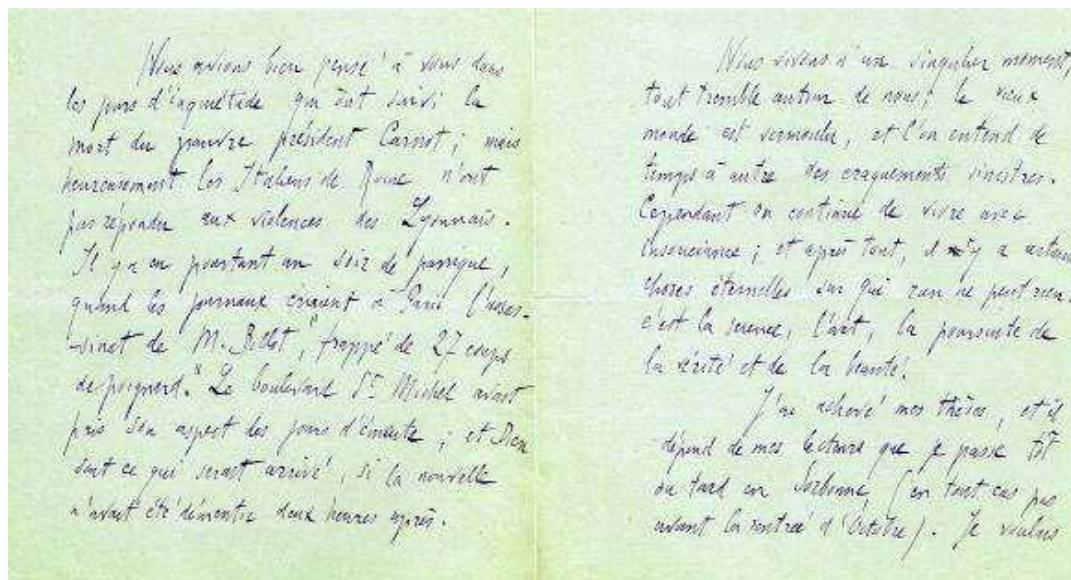 Nous avions bien pensé à vous dans
les jours d'inquiétude qui ont suivi la
mort du pauvre président Carnot ; mais
heureusement les Italiens de Rome n'ont
pas répondu aux violences des Lyonnais.
Il y a eu pourtant un soir de panique,
quand les journaux criaient à Paris l'assas-
-sinat de M. Billot, "frappé de 27 coups
de poignard." Le boulevard St Michel avait
pris son aspect des jours d'émeute ; et Dieu
sait ce qui serait arrivé, si la nouvelle
n'avait été démentie deux heures après.
Nous vivons à un singulier moment,
tout tremble autour de nous ; le vieux
monde est vermoulu, et l'on entend de
temps à autre des craquements sinistres.
Cependant on continue de vivre avec
insouciance ; et après tout, il y a
choses éternelles sur qui rien ne peut rien.
c'est la science, l'art, la poursuite de
la vérité et de la beauté.
J'ai achevé mes thèses, et il
dépend de mes lecteurs que je passe tôt
ou tard en Sorbonne, (en tout cas pas
avant la rentrée d'Octobre). Je voulais